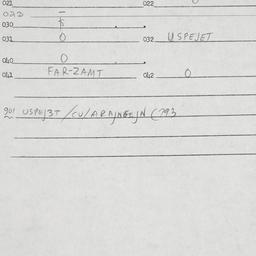 021 022
023 –
030 $
031 0 032 USPEJET
040 0
041 FAR-ZAMT 042 0
901 USPEJ3T /CU/ARAJNGEJN (793